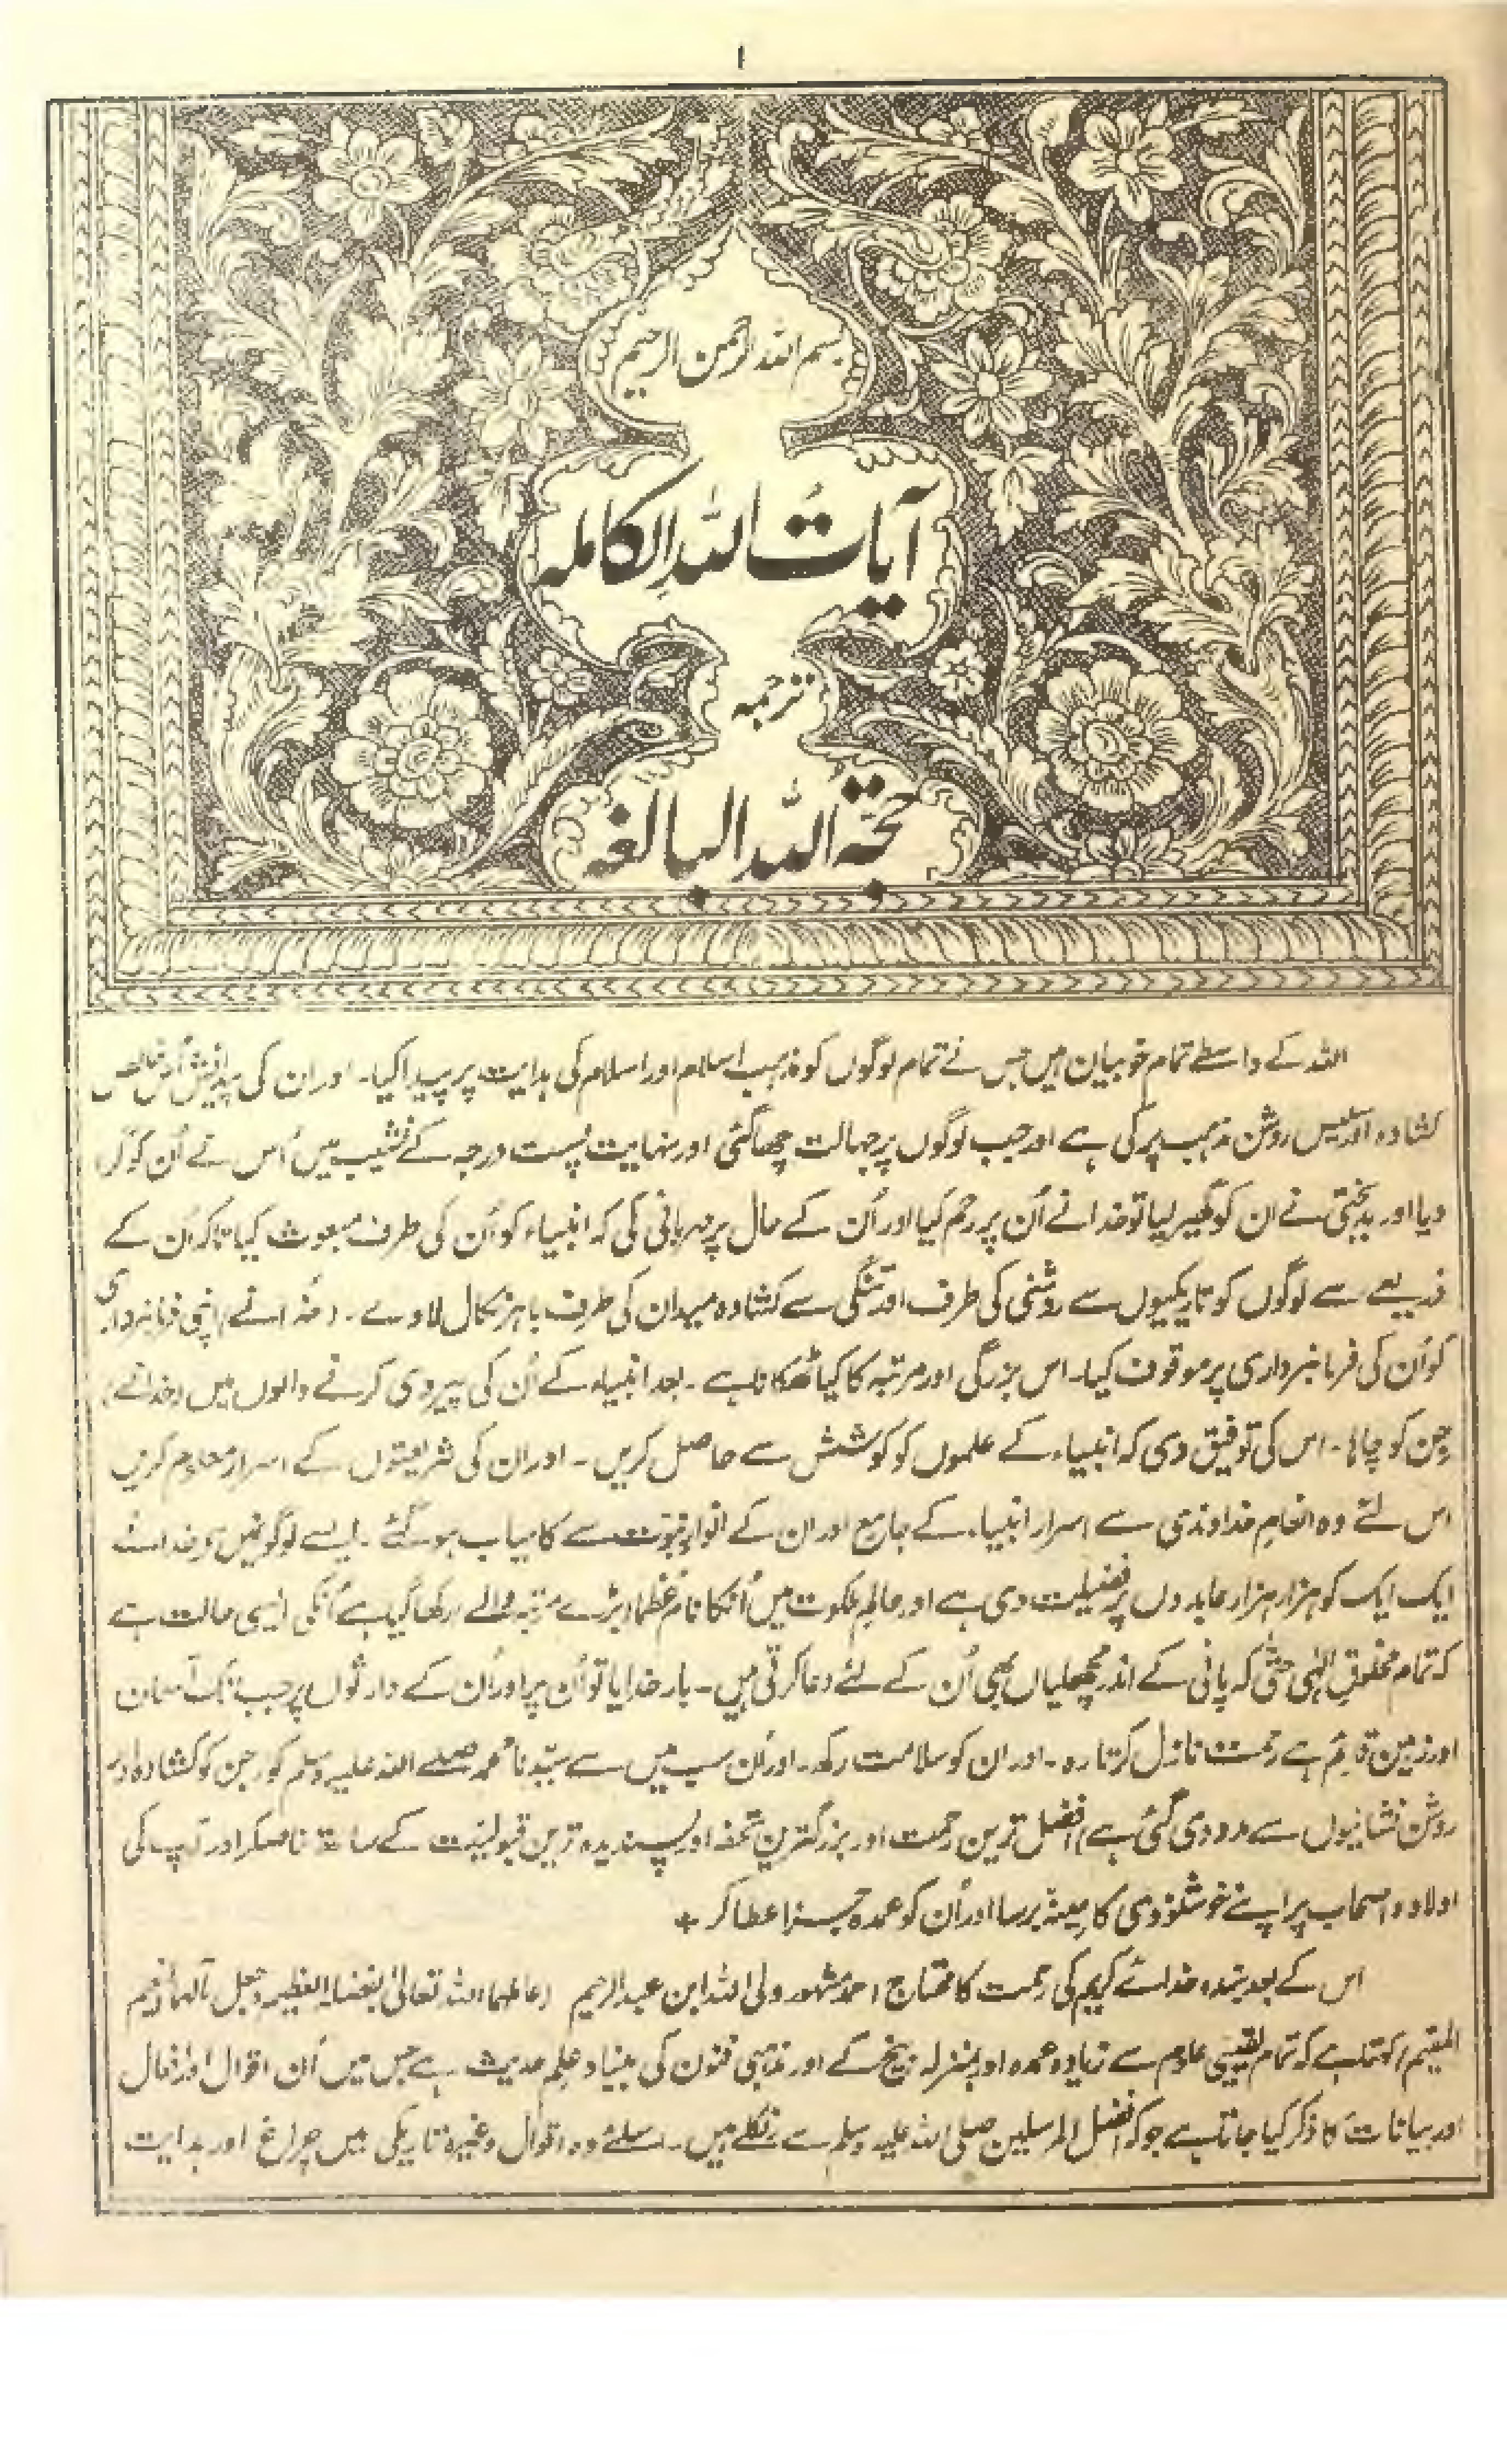 ۱
بسم اللہ الرحمن الرحیم
آیاتُ اللہِ الکاملہ
ترجمہ
حجۃ اللہ البالغہ
اللہ کے واسطے تمام خوبیان ہیں جس نے تمام لوگوں کو مذہب اسلام اور اسلام کی ہدایت پر پیدا کیا۔ اور ان کی پیدایش اُس خالص
کشادہ اور سلیس روشن مذہب پر کی ہے اور جب لوگوں پر جہالت چھا گئی اور نہایت پست درجہ کے نشیب میں اُس نے اُن کو گرا
دیا اور بدبختی نے ان کو گھیر لیا تو خدا نے اُن پر رحم کیا اور اُن کے حال پر مہربانی کی کہ انبیاء کو اُن کی طرف مبعوث کیا تاکہ اُن کے
ذریعے سے لوگوں کو تاریکیوں سے روشنی کی طرف اور تنگی سے کشادہ میدان کی طرف باہر نکال لاوے۔ (خدا نے) اپنی فرمانبرداری
کو اُن کی فرمانبرداری پر موقوف کیا۔ اس بزرگی اور مرتبہ کا کیا ٹھکانا ہے۔ بعد انبیاء کے اُن کی پیروی کرنے والوں میں (خدا نے)
جن کو چاہا۔ اس کی توفیق دی کہ انبیاء کے علموں کو کوشش سے حاصل کریں۔ اور ان کی شریعتوں کے اسرار معلوم کریں
اس لئے وہ انعامِ خداوندی سے اسرار انبیاء کے جامع اور ان کے انوارِ نبوت سے کامیاب ہو گئے۔ ایسے لوگونمیں سے خدا نے
ایک ایک کو ہزار ہزار عابدوں پر فضیلت دی ہے اور عالم ملکوت میں اُنکا نام عُظما (بڑے مرتبہ والے) رکھا گیا ہے اُنکی ایسی حالت ہے
کہ تمام مخلوقِ الٰہی حتّٰی کہ پانی کے اندر مچھلیاں بھی اُن کے لئے دعا کرتی ہیں۔ بار خدایا تو اُن پر اور اُن کے وارثوں پر جب تک آسمان
اور زمین قائم ہے رحمت نازل کرتا رہ۔ اور ان کو سلامت رکھ۔ اور اُن سب میں سے سیّدنا محمد صلے اللہ علیہ وسلم کو (جن کو کشادہ اور
روشن نشانیوں سے مدد دی گئی ہے) افضل ترین رحمت اور بزرگترین تحفہ اور پسندیدہ ترین قبولیت کے ساتھ خاص کر اور آپ کی
اولاد و اصحاب پر اپنے خوشنودی کا مینھ برسا اور اُن کو عمدہ جزا عطا کر +
اس کے بعد بندہ خدائے کریم کی رحمت کا محتاج احمد مشہور ولی اللہ ابن عبد الرحیم (عاملہما اللہ تعالیٰ بفضلہ العظیم وجعل مآلہما النعیم
المقیم) کہتا ہے کہ تمام یقینی علوم سے زیادہ عمدہ اور بمنزلہ بیخ کے اور مذہبی فنون کی بنیاد علم حدیث ہے جس میں اُن اقوال اور افعال
اور بیانات کا ذکر کیا جاتا ہے جو کہ افضل المرسلین صلی اللہ علیہ وسلم سے نکلے ہیں۔ اسلئے وہ اقوال وغیرہ تاریکی میں چراغ اور ہدایت